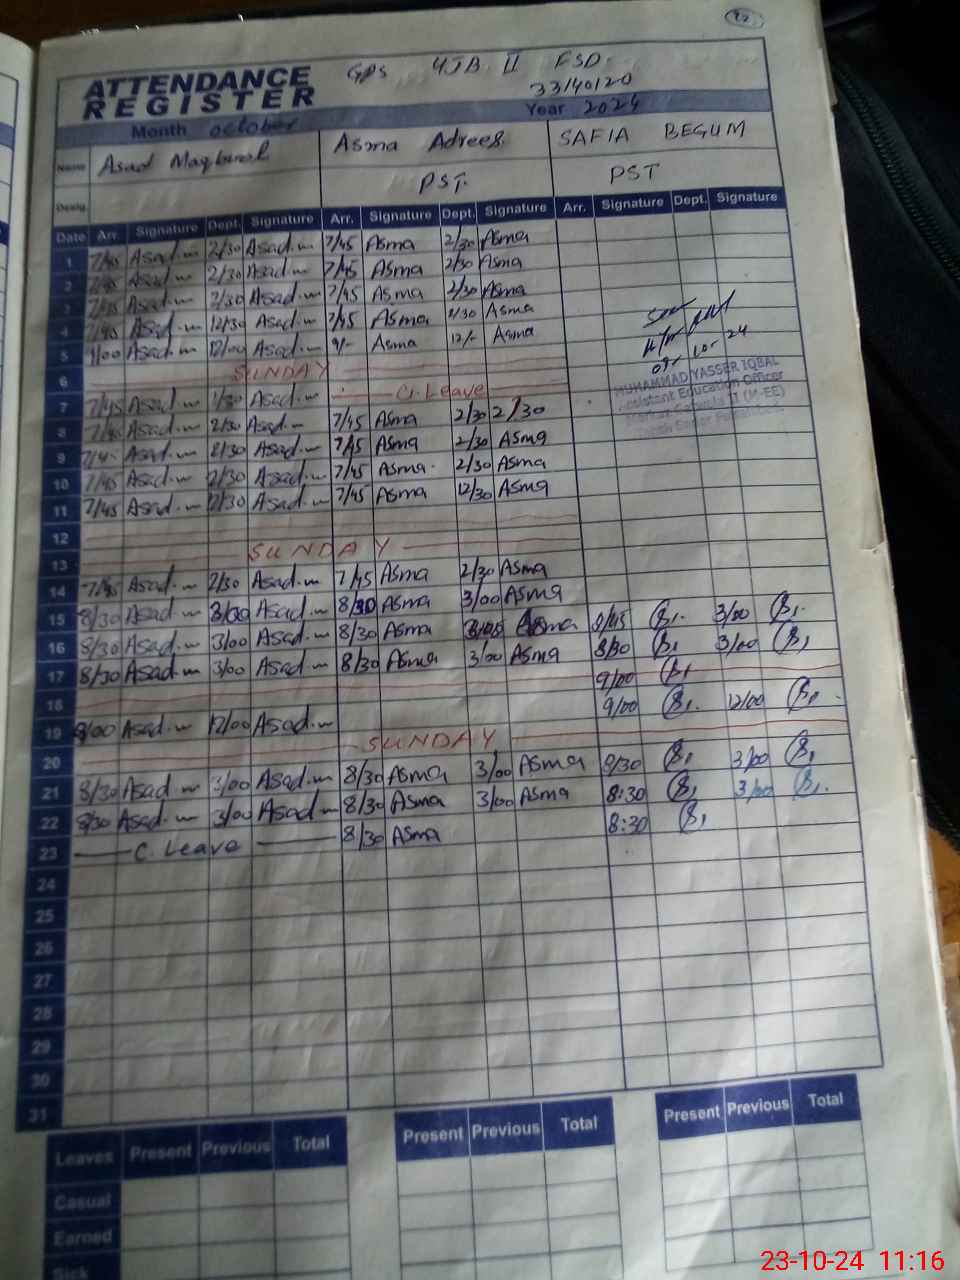 22
ATTENDANCE GPS 4JB II FSD.
REGISTER 33140120
Month October Year 2024
Name Asad Maqbool Asma Adrees. SAFIA BEGUM
Desig. PST. PST
Date Arr. Signature Dept. Signature Arr. Signature Dept. Signature Arr. Signature Dept. Signature
1 7/45 Asad 2/30 Asad 7/45 Asma 2/30 Asma
2 7/45 Asad 2/30 Asad 7/45 Asma 2/30 Asma
3 7/45 Asad 2/30 Asad 7/45 Asma 2/30 Asma
4 7/45 Asad 12/30 Asad 7/45 Asma Asma
5 9/00 Asad 12/00 Asad 9/- Asma 12/- Asma
09-10-24
6 SUNDAY
MUHAMMAD YASSER IQBAL
Assistant Education Officer
(M-EE)
7 7/45 Asad 1/30 Asad C. Leave
8 7/45 Asad 2/30 Asad 7/45 Asma 2/30 2/30
9 7/4 Asad 2/30 Asad 7/45 Asma 2/30 Asma
10 7/45 Asad 2/30 Asad 7/45 Asma 2/30 Asma
11 7/45 Asad 12/30 Asad 7/45 Asma 12/30 Asma
12
13 SUNDAY
14 7/45 Asad 2/30 Asad 7/45 Asma 2/30 Asma
15 8/30 Asad 3/00 Asad 8/30 Asma 3/00 Asma 8/45 3/00
16 8/30 Asad 3/00 Asad 8/30 Asma Asma 8/30 3/00
17 8/30 Asad 3/00 Asad 8/30 Asma 3/00 Asma 9/00
18 9/00 12/00
19 9/00 Asad 12/00 Asad
20 SUNDAY
21 8/30 Asad 3/00 Asad 8/30 Asma 3/00 Asma 8/30 3/00
22 8/30 Asad 3/00 Asad 8/30 Asma 3/00 Asma 8:30 3/00
23 C. Leave 8/30 Asma 8:30
24
25
26
27
28
29
30
31
Leaves Present Previous Total Present Previous Total Present Previous Total
Casual
Earned
Sick
23-10-24 11:16